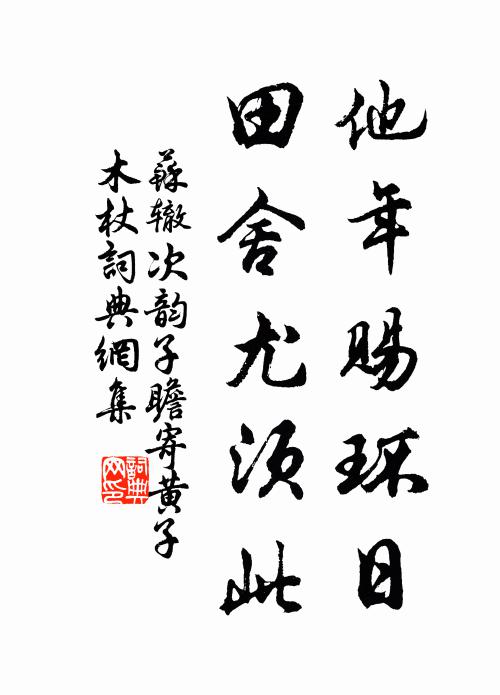 他年賜环日
田舍尤須此
蘇辙次韵子瞻寄黄子
木杖詞典網集
詞典
网印